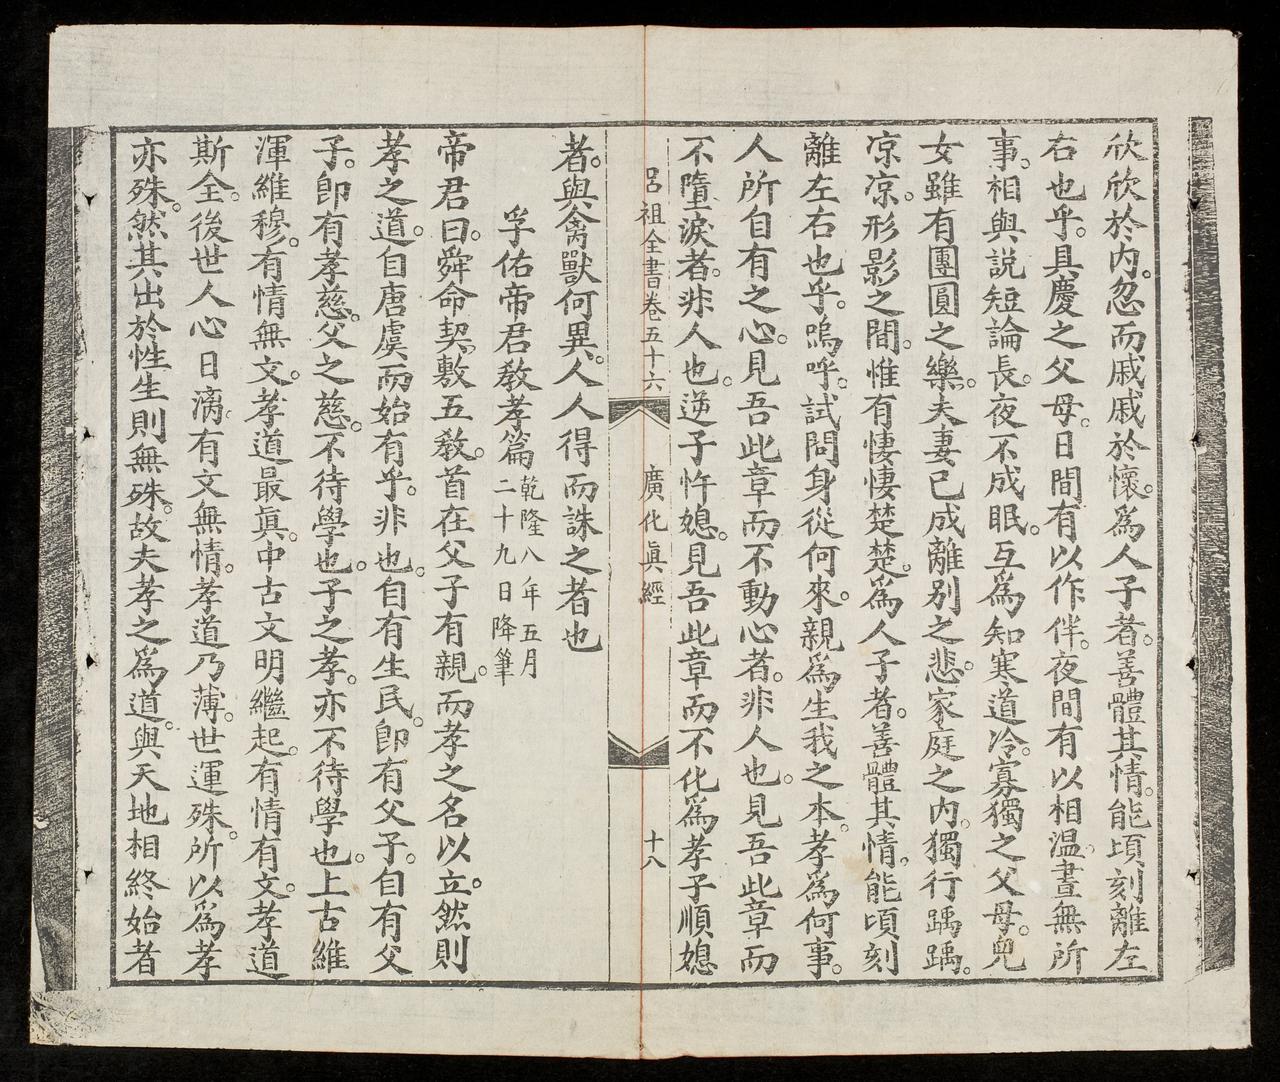 欣欣於內。忽而戚戚於懷。爲人子者。善體其情。能頃刻離左
右也乎。具慶之父母。日間有以作伴。夜間有以相温。晝無所
事。相與說短論長。夜不成眠。互爲知寒道冷。寡獨之父母。兒
女雖有團圓之樂。夫妻已成離別之悲。家庭之內。獨行踽踽。
凉凉。形影之間。惟有悽悽楚楚。爲人子者。善體其情。能頃刻
離左右也乎。嗚呼。試問身從何來。親爲生我之本。孝爲何事。
人所自有之心。見吾此章而不動心者。非人也。見吾此章而
不墮淚者。非人也。逆子忤媳。見吾此章而不化爲孝子順媳
呂祖全書卷五十六 廣化眞經 十八
者。與禽獸何異。人人得而誅之者也
孚佑帝君教孝篇 乾隆八年五月
二十九日降筆
帝君曰。舜命契。敷五教。首在父子有親。而孝之名以立。然則
孝之道。自唐虞而始有乎。非也。自有生民。卽有父子。自有父
子。卽有孝慈。父之慈。不待學也。子之孝。亦不待學也。上古維
渾維穆。有情無文。孝道最眞。中古文明繼起。有情有文。孝道
斯全。後世人心日漓。有文無情。孝道乃薄。世運殊。所以爲孝
亦殊。然其出於性生則無殊。故夫孝之爲道。與天地相終始者